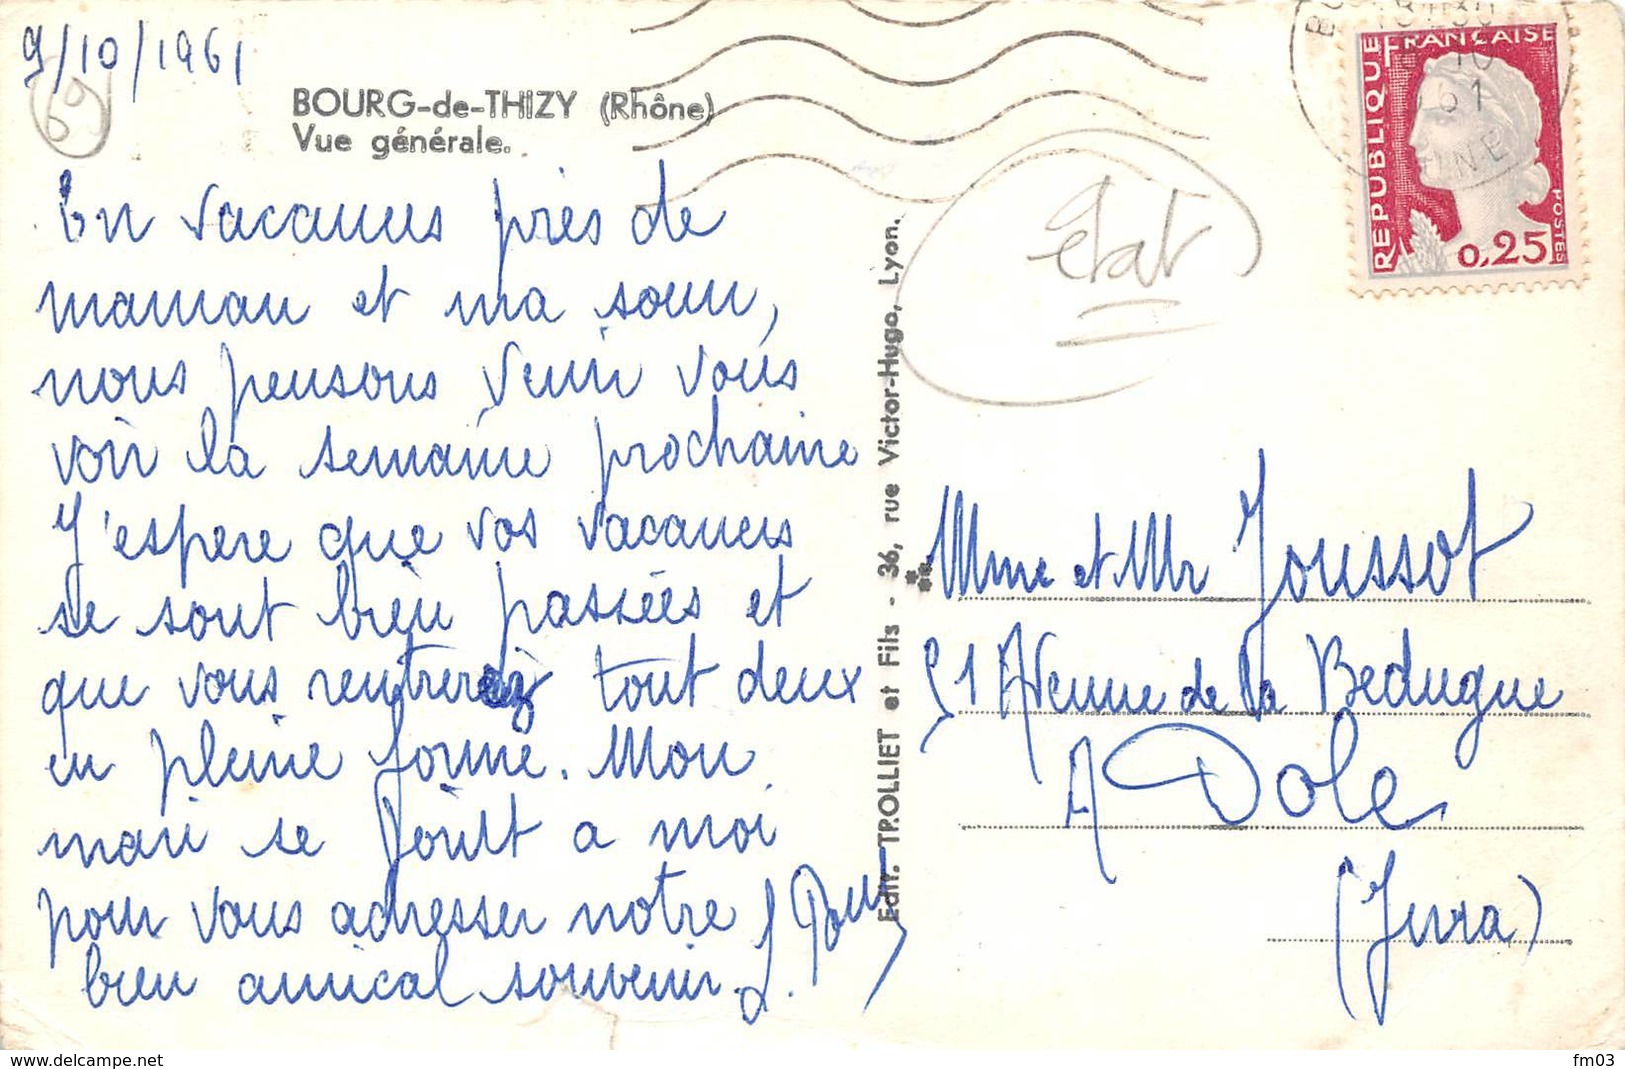 9/10/1961
69
BOURG-de-THIZY (Rhône)
Vue générale.
En vacances près de
maman et ma sœur,
nous pensons venir vous
voir la semaine prochaine
J'espere que vos vacances
se sont bien passées et
que vous rentrerez tout deux
en pleine forme. Mon
mari se joint a moi
pour vous adresser notre
bien amical souvenir.
Edit. TROLLIET et Fils - 36, rue Victor-Hugo, Lyon.
état
REPUBLIQUE FRANÇAISE
POSTES
0,25
Mme et Mr Joussot
51 Avenue de la Bedugue
A Dole
(Jura)
www.delcampe.net
fm03